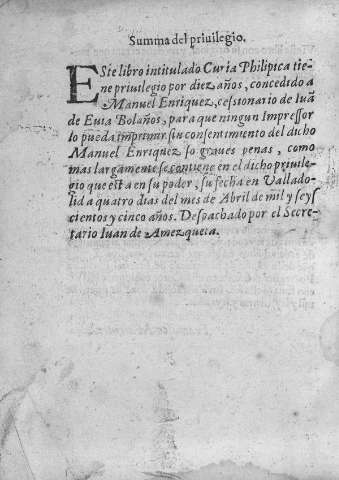 Summa del priuilegio.
ESte libro intitulado Curia Philipica tie-
ne priuilegio por diez años, concedido a
Manuel Enriquez, cessionario de Iuã
de Euia Bolaños, para que ningun Impressor
lo pueda imprimir sin consentimiento del dicho
Manuel Enriquez so graues penas, como
mas largamente se contiene en el dicho priuile-
gio que està en su poder, su fecha en Vallado-
lid a quatro dias del mes de Abril de mil y seys
cientos y cinco años. Despachado por el Secre-
tario Iuan de Amezqueta.